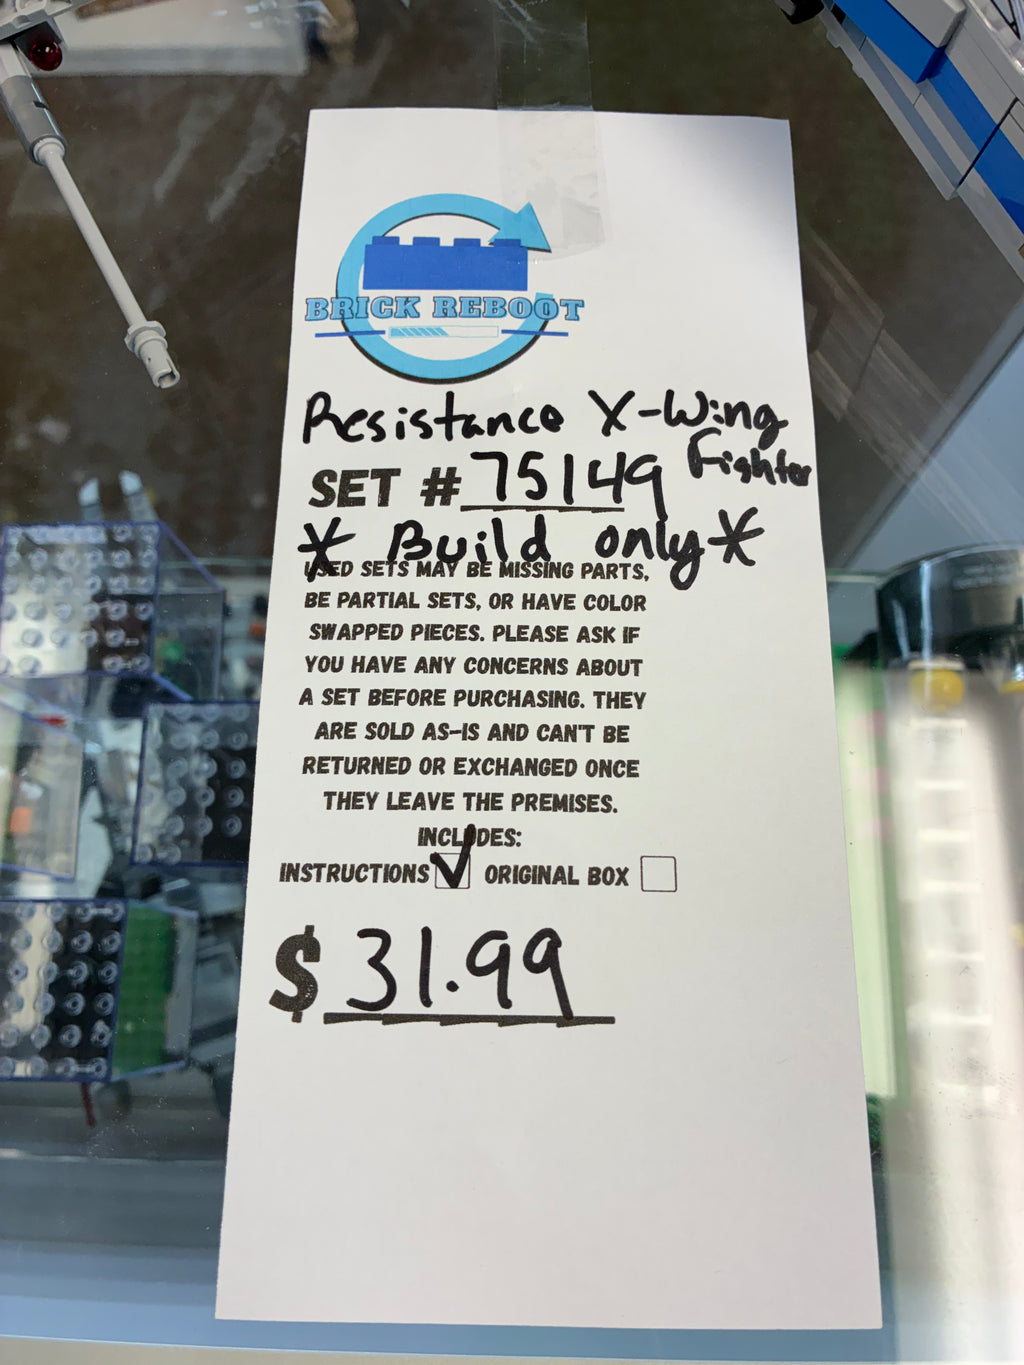 BRICK REBOOT
Resistance X-Wing
Fighter
SET # 75149
* Build only *
USED SETS MAY BE MISSING PARTS,
BE PARTIAL SETS, OR HAVE COLOR
SWAPPED PIECES. PLEASE ASK IF
YOU HAVE ANY CONCERNS ABOUT
A SET BEFORE PURCHASING. THEY
ARE SOLD AS-IS AND CAN'T BE
RETURNED OR EXCHANGED ONCE
THEY LEAVE THE PREMISES.
INCLUDES:
INSTRUCTIONS ORIGINAL BOX
$ 31.99